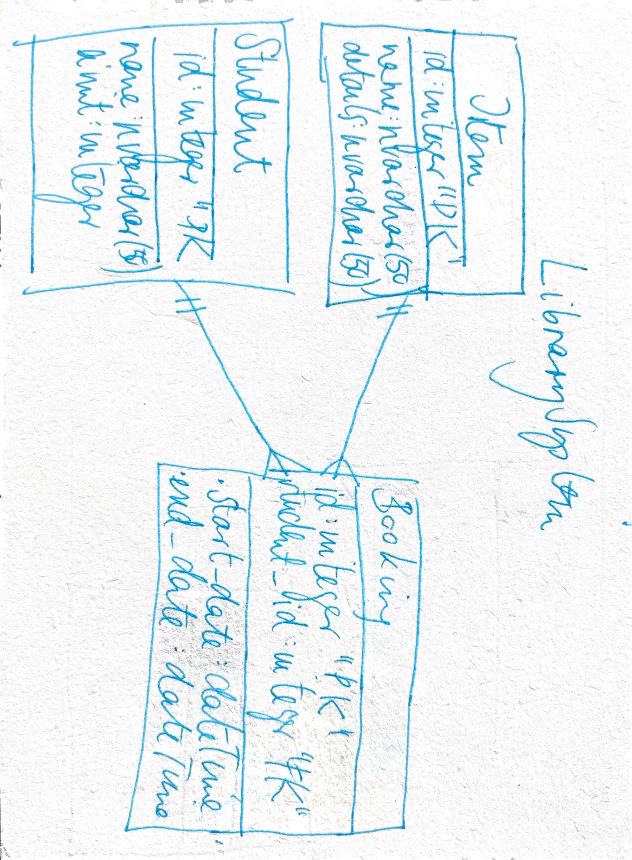 Library System
Item
id: integer "PK"
name: nvarchar(50
details: nvarchar(50)
Student
id: integer "PK
name: nvarchar(50)
integer
Booking
id: integer "PK"
student_id: integer "FK"
start_date: dateTime
end_date: dateTime